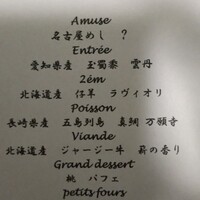 Amuse
名古屋めし ?
Entrée
愛知県産 玉蜀黍 雲丹
2ém
北海道産 仔羊 ラヴィオリ
Poisson
長崎県産 五島列島 真鯛 万願寺
Viande
北海道産 ジャージー牛 薪の香り
Grand dessert
桃 パフェ
petits fours